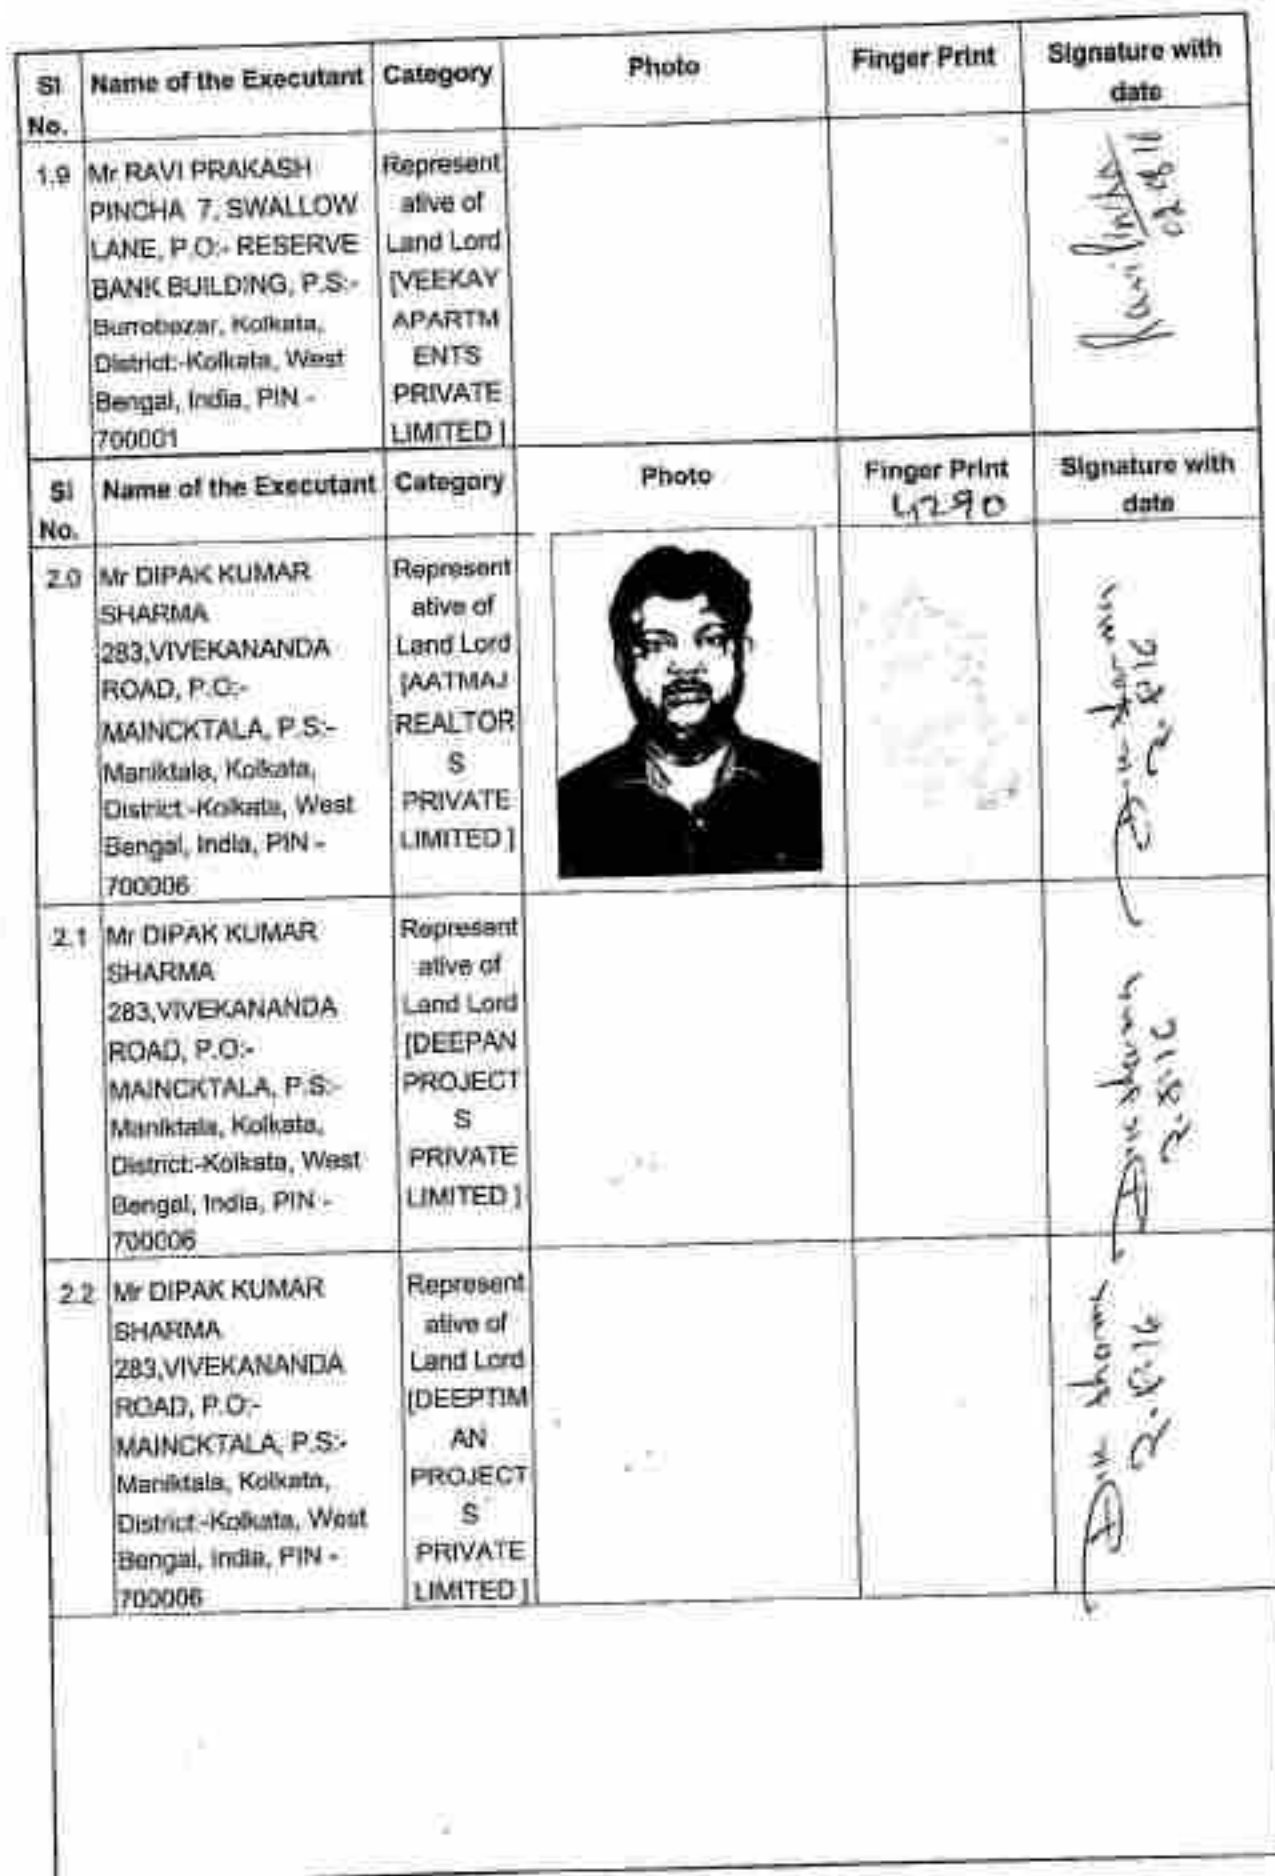 Sl No.
Name of the Executant
Category
Photo
Finger Print
Signature with date
1.9
Mr RAVI PRAKASH
PINCHA 7, SWALLOW
LANE, P.O:- RESERVE
BANK BUILDING, P.S:-
Burrobazar, Kolkata,
District:-Kolkata, West
Bengal, India, PIN -
700001
Represent
ative of
Land Lord
[VEEKAY
APARTM
ENTS
PRIVATE
LIMITED ]
Sl No.
Name of the Executant
Category
Photo
Finger Print
4290
Signature with date
2.0
Mr DIPAK KUMAR
SHARMA
283,VIVEKANANDA
ROAD, P.O:-
MAINCKTALA, P.S:-
Maniktala, Kolkata,
District:-Kolkata, West
Bengal, India, PIN -
700006
Represent
ative of
Land Lord
[AATMAJ
REALTOR
S
PRIVATE
LIMITED ]
2.8.16
2.1
Mr DIPAK KUMAR
SHARMA
283,VIVEKANANDA
ROAD, P.O:-
MAINCKTALA, P.S:-
Maniktala, Kolkata,
District:-Kolkata, West
Bengal, India, PIN -
700006
Represent
ative of
Land Lord
[DEEPAN
PROJECT
S
PRIVATE
LIMITED ]
Sharma
2.8.16
2.2
Mr DIPAK KUMAR
SHARMA
283,VIVEKANANDA
ROAD, P.O:-
MAINCKTALA, P.S:-
Maniktala, Kolkata,
District:-Kolkata, West
Bengal, India, PIN -
700006
Represent
ative of
Land Lord
[DEEPTIM
AN
PROJECT
S
PRIVATE
LIMITED ]
Sharma
2.8.16